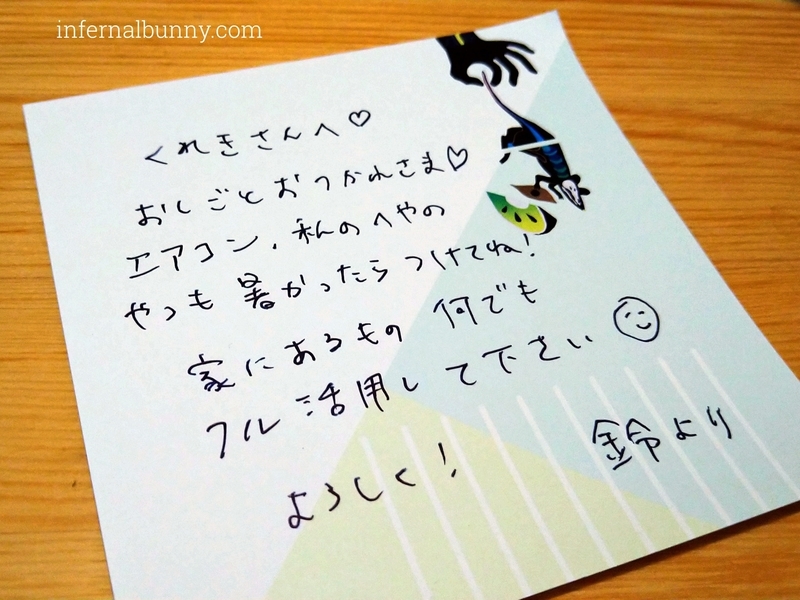 infernalbunny.com
くれきさんへ♡
おしごとおつかれさま♡
エアコン、私のへやの
やつも暑かったらつけてね!
家にあるもの何でも
フル活用して下さい☺
よろしく!
鈴より